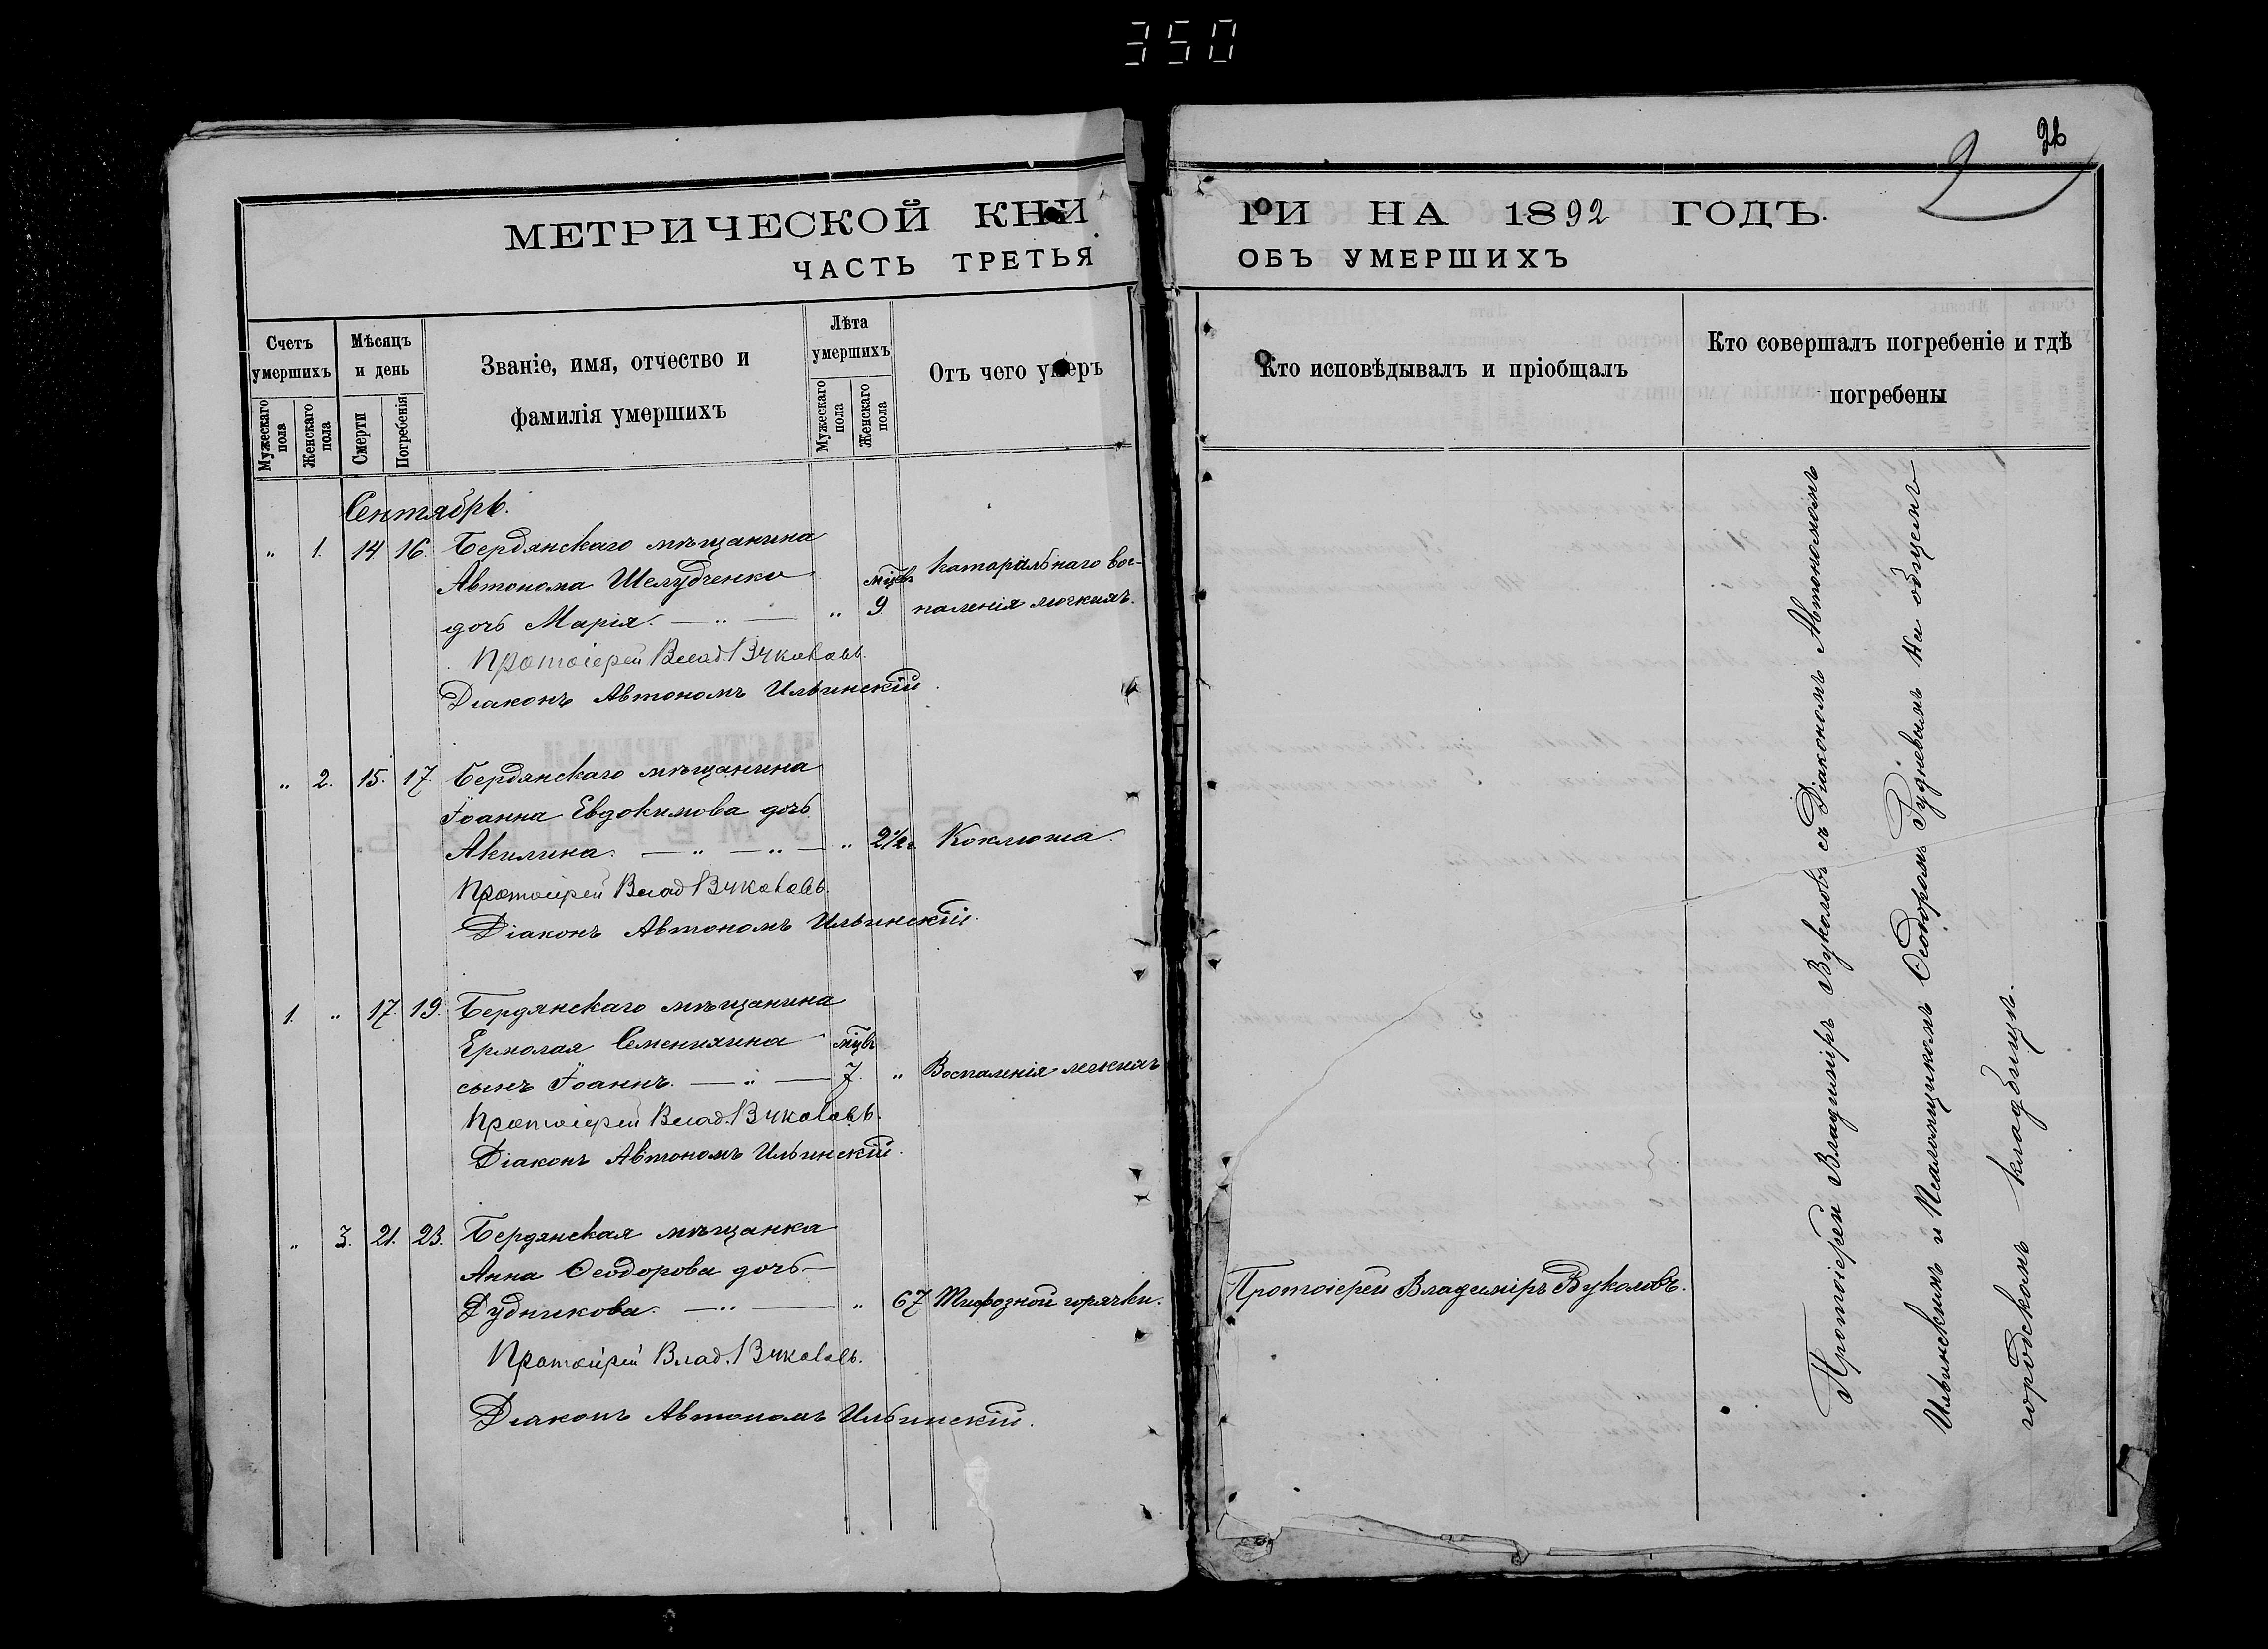 350
26
2
МЕТРИЧЕСКОЙ КНИ
ГИ НА 1892 ГОДЪ.
ЧАСТЬ ТРЕТЬЯ
ОБЪ УМЕРШИХЪ
Счетъ умершихъ
Мужескаго пола
Женскаго пола
Мѣсяцъ и день
Смерти
Погребенія
Званіе, имя, отчество и
фамилія умершихъ
Лѣта умершихъ
Мужескаго пола
Женскаго пола
Отъ чего умеръ
Кто исповѣдывалъ и пріобщалъ
Кто совершалъ погребеніе и гдѣ
погребены
Сентябрь.
„ 1. 14. 16. Бердянскаго мѣщанина
Автонома Шелудченко мцвъ катаральнаго вос-
дочь Марія. — „ — „ 9 паленія легкихъ.
Протоіерей Влад. Вуколовъ.
Діаконъ Автономъ Ильинскій.
„ 2. 15. 17. Бердянскаго мѣщанина
Іоанна Евдокимова дочь
Акилина. — „ — „ — „ 2½ г. Коклюша.
Протоіерей Влад. Вуколовъ.
Діаконъ Автономъ Ильинскій.
1. „ 17. 19. Бердянскаго мѣщанина
Ермолая Семенихина мцвъ
сынъ Іоаннъ. — „ — 7. „ Воспаленія легкихъ
Протоіерей Влад. Вуколовъ.
Діаконъ Автономъ Ильинскій.
„ 3. 21. 23. Бердянская мѣщанка
Анна Ѳеодорова дочь —
Дудникова. — „ — „ 67 Тифозной горячки. Протоіерей Владиміръ Вуколовъ.
Протоіерей Влад. Вуколовъ.
Діаконъ Автономъ Ильинскій.
Протоіерей Владиміръ Вуколовъ съ Діакономъ Автономомъ
Ильинскимъ и Псаломщикомъ Ѳеодоромъ Рудневымъ на общемъ
городскомъ кладбищѣ.